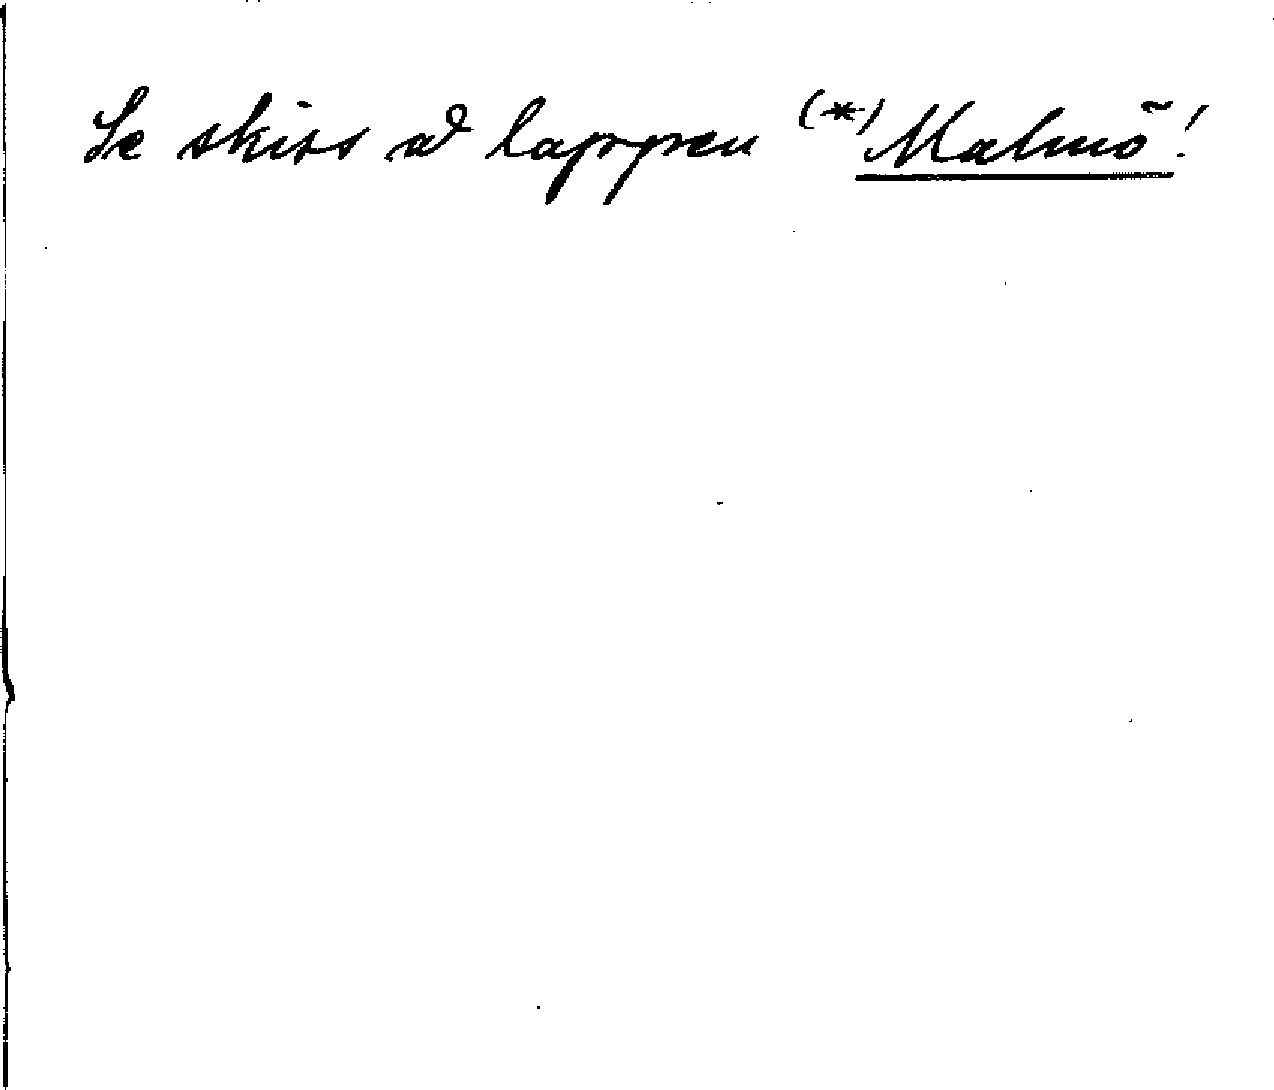 Se skiss å lappen (*) Malmö!